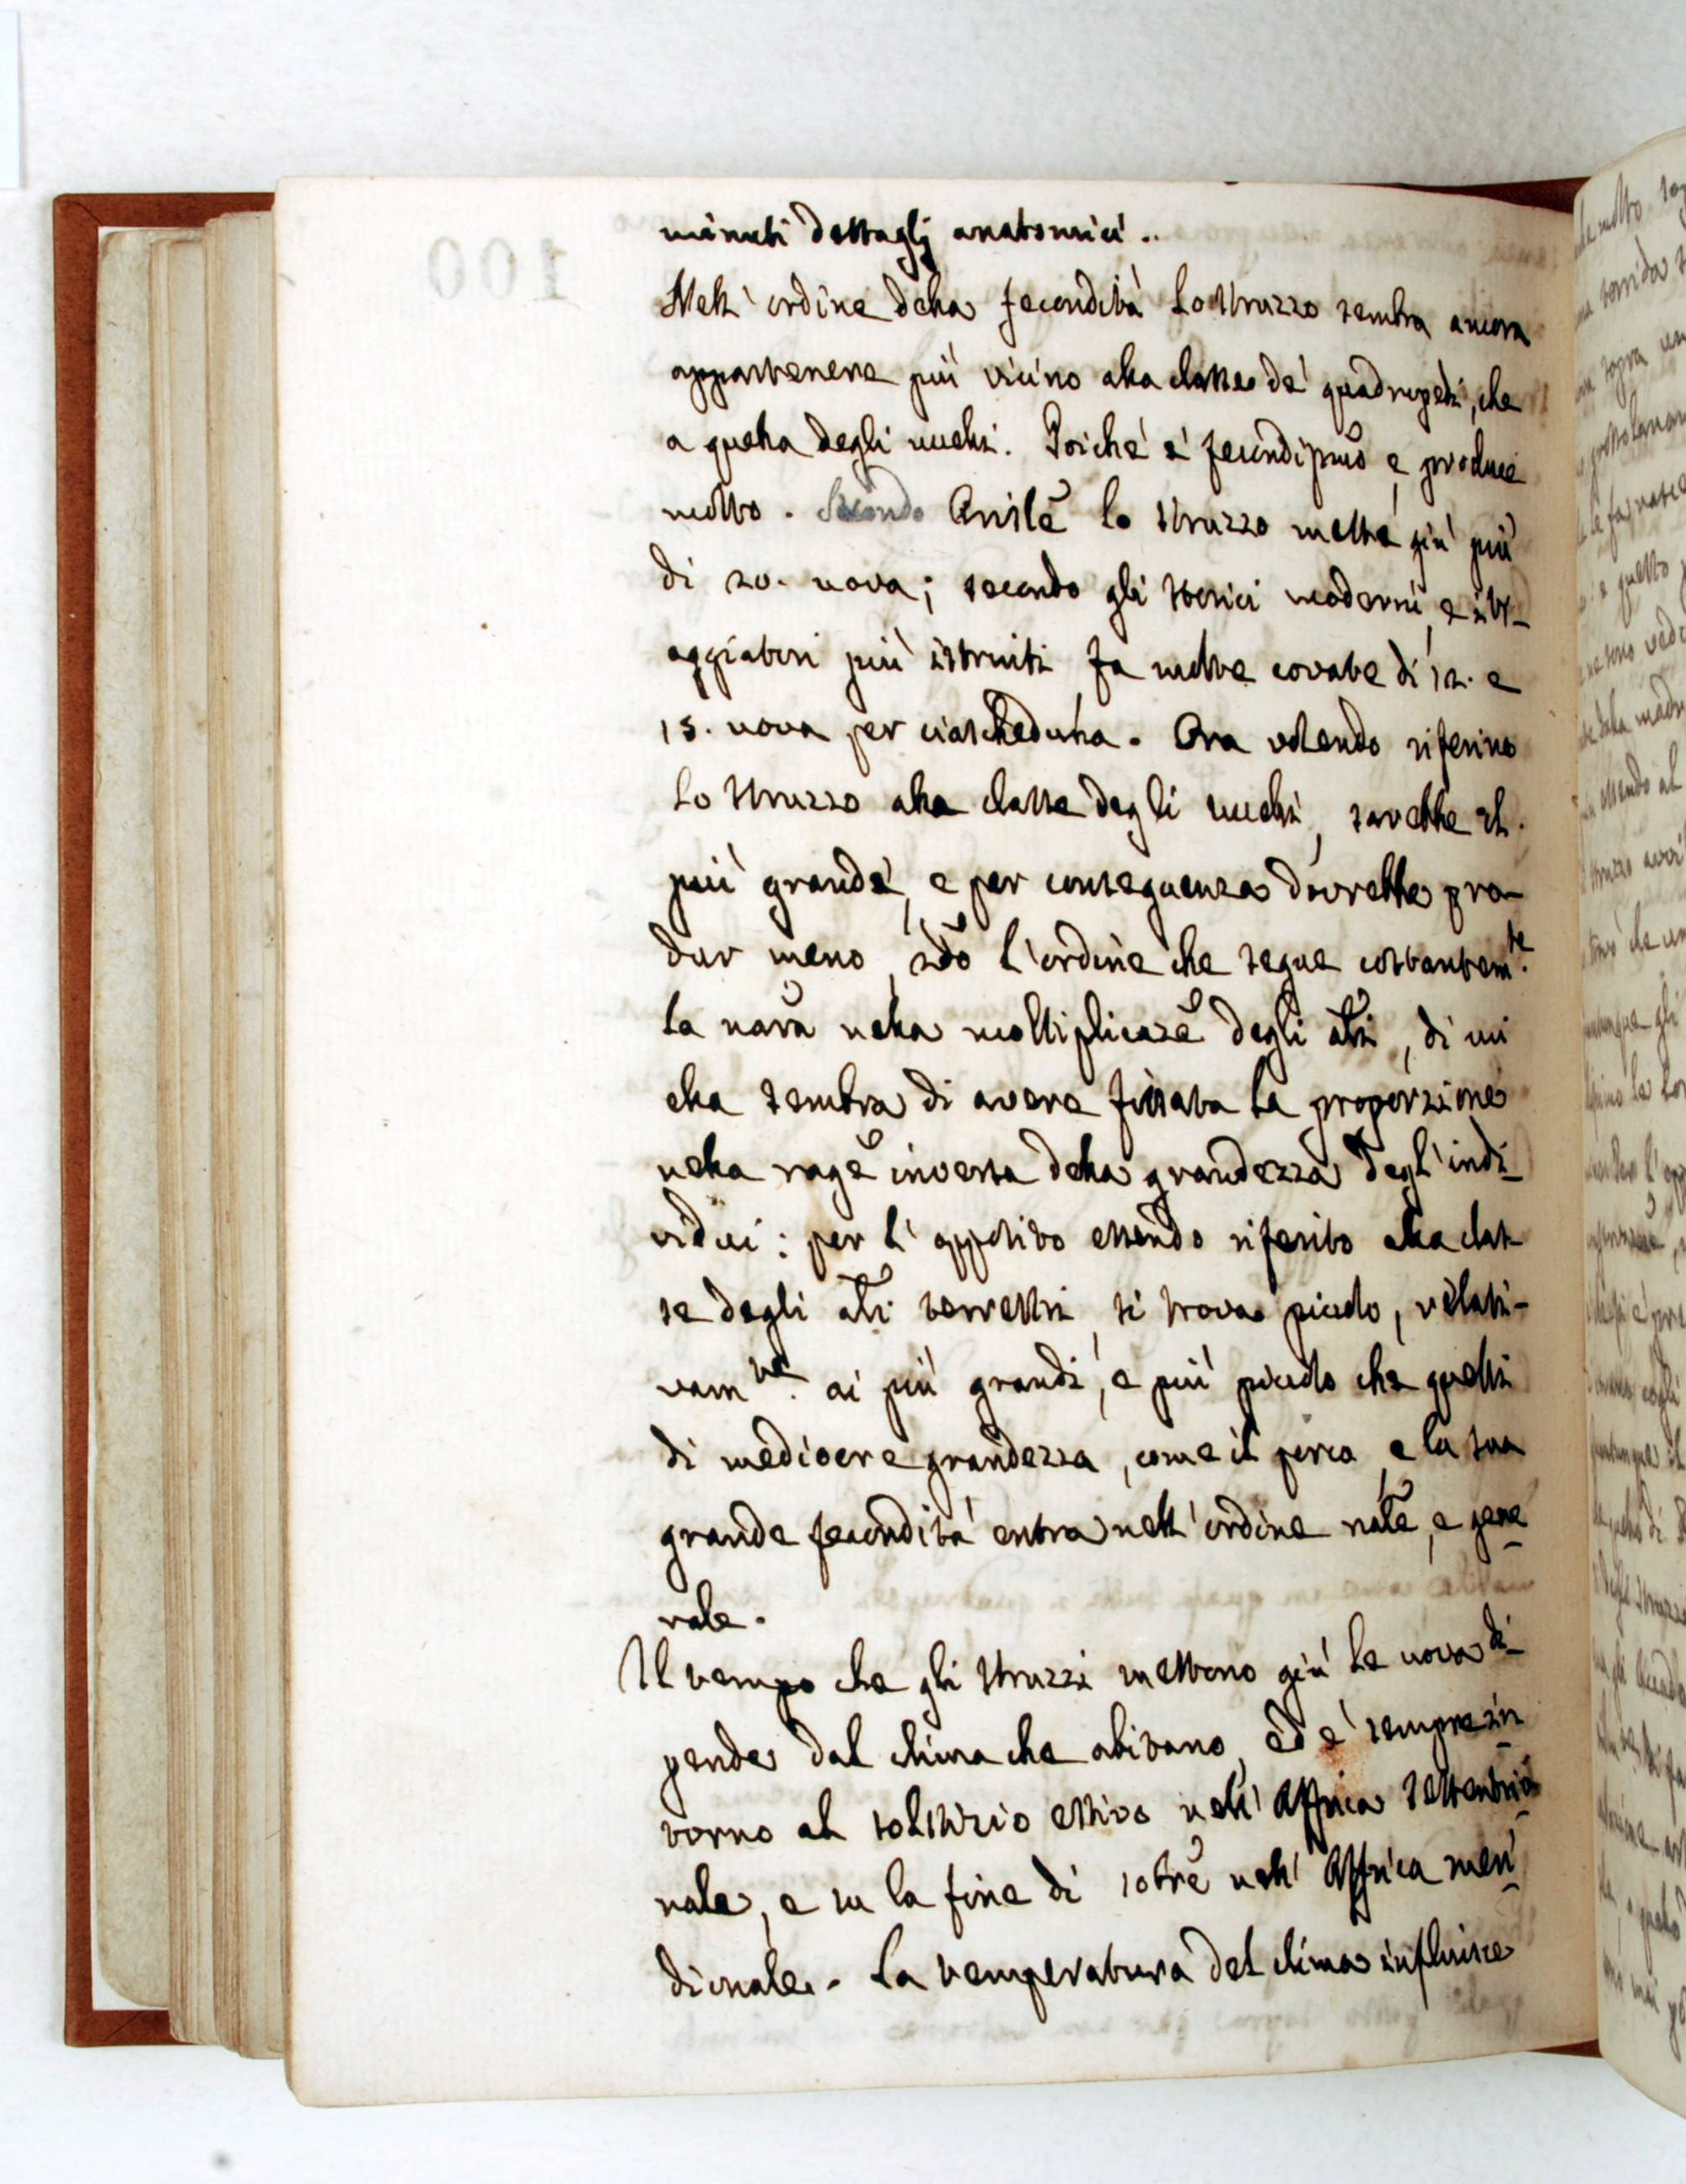 minuti dettaglj anatomici..
Nell' ordine della fecondità lo struzzo sembra ancora
appartenere più vicino alla classe de' quadrupedi, che
a quella degli uccelli. Poichè è fecondiss̃mo e produce
molto. Secondo Aristẽ lo struzzo mette giù più
di 20. uova; secondo gli storici moderni, e i vi-
aggiatori più istruiti fa molte covate di 12. e
15. uova per ciascheduna. Ora volendo riferire
lo struzzo alla classe degli uccelli, sarebbe il
più grande, e per conseguenza dovrebbe pro-
dur meno, sdõ l'ordine che segue costantem.te
la narã nella moltiplicazẽ degli alĩ, di cui
ella sembra di avere fissata la proporzione
nella ragẽ inversa della grandezza degl' indi-
vidui: per l' oppositto essendo riferito alla clas-
se degli alĩ terrestri, si trova picciolo, relati-
vam.te ai più grandi, e più picciolo che quelli
di mediocre grandezza, come il porco, e la sua
grande fecondità entra nell' ordine nalẽ, e gene-
rale.
Il tempo che gli struzzi mettono giù le uova di-
pende dal clima che abitano, ed è sempre in-
torno al solstizio estivo nell' Affrica settentrio-
nale, e su la fine di 10brẽ nell' Affrica meri-
dionale. La temperatura del clima influisce
100